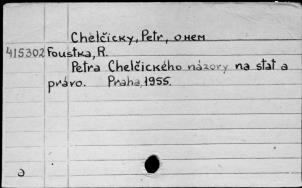 Chelčicky, Petr, o нем
415302 Foustka, R.
Petra Chelčického názory na stát a
právo. Praha, 1955.